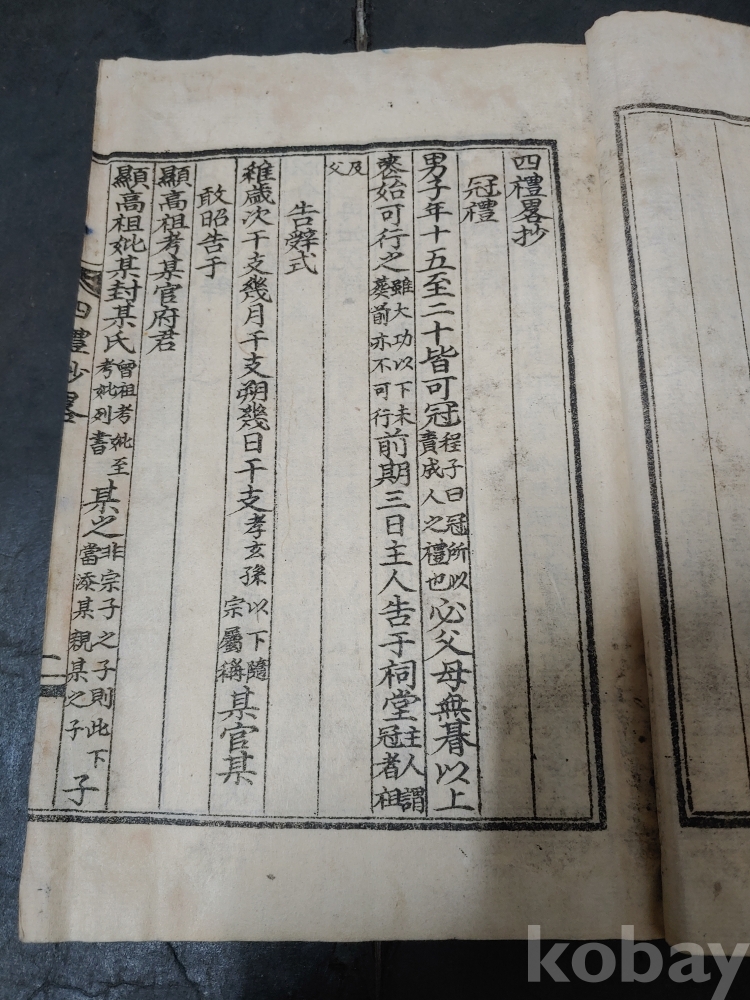 四禮畧抄
冠禮
男子年十五至二十皆可冠程子曰冠所以責成人之禮也必父母無朞以上
喪始可行之雖大功以下未葬前亦不可行前期三日主人告于祠堂主人謂冠者祖
及父
告辭式
維歲次干支幾月干支朔幾日干支孝玄孫以下隨宗屬稱某官某
敢昭告于
顯高祖考某官府君
顯高祖妣某封某氏曾祖考妣至考妣列書某之非宗子之子則此下當添某親某之子子
四禮抄畧
kobay